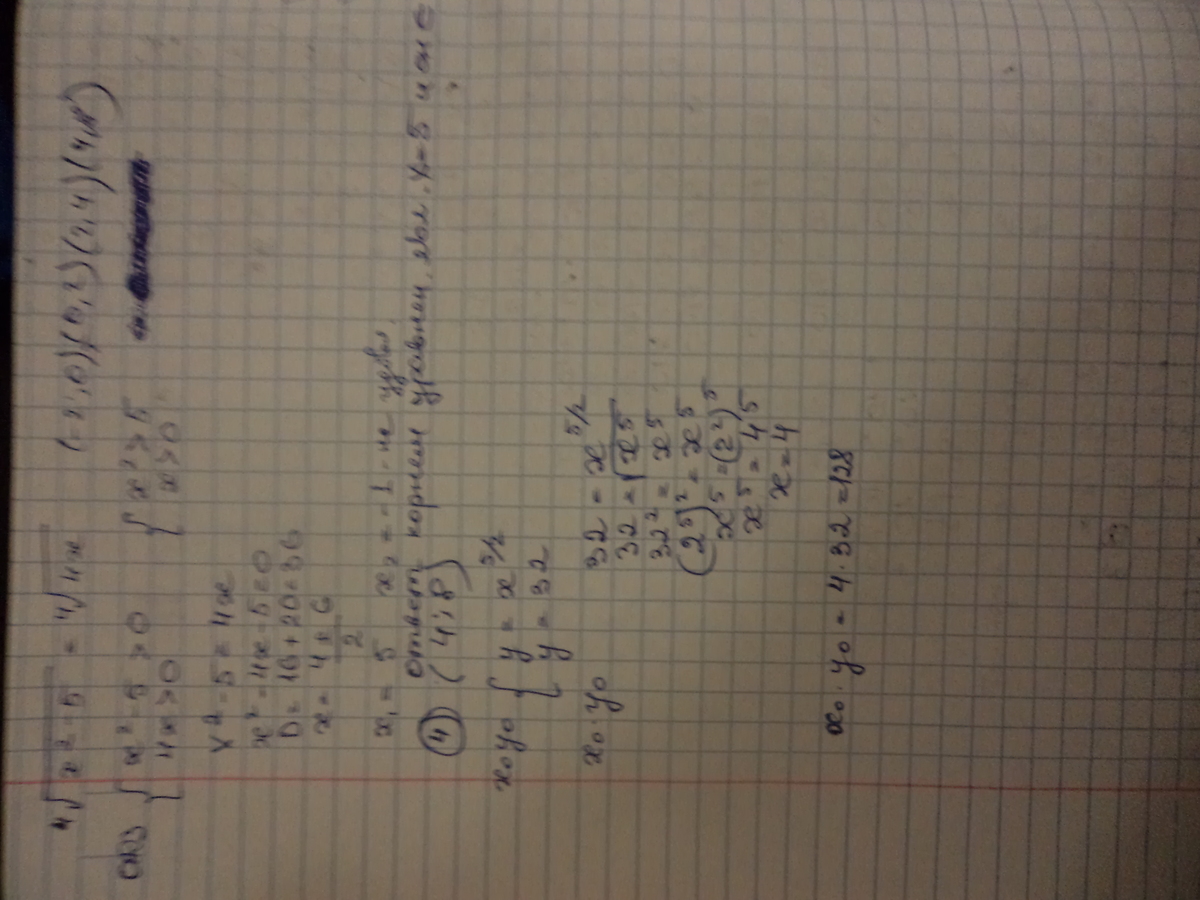 ⁴√x²-5 = ⁴√4x (0,2) (2,4)
ОДЗ { x²-5>0 { x²>5
4x>0 x>0
x²-5=4x
x²-4x-5=0
D=16+20=36
x= 4±6
2
x₁=5 x₂=-1 - не удовл.
ответ корнем уравнен. явл. x=5 и он є
④ (4;8)
x₀y₀ { y=x^5/2
y=32
x₀·y₀ 32=x^5/2
32=√x⁵
32²=x⁵
(2⁵)²=x⁵
x⁵=(2²)⁵
x⁵=4⁵
x=4
x₀·y₀=4·32=128